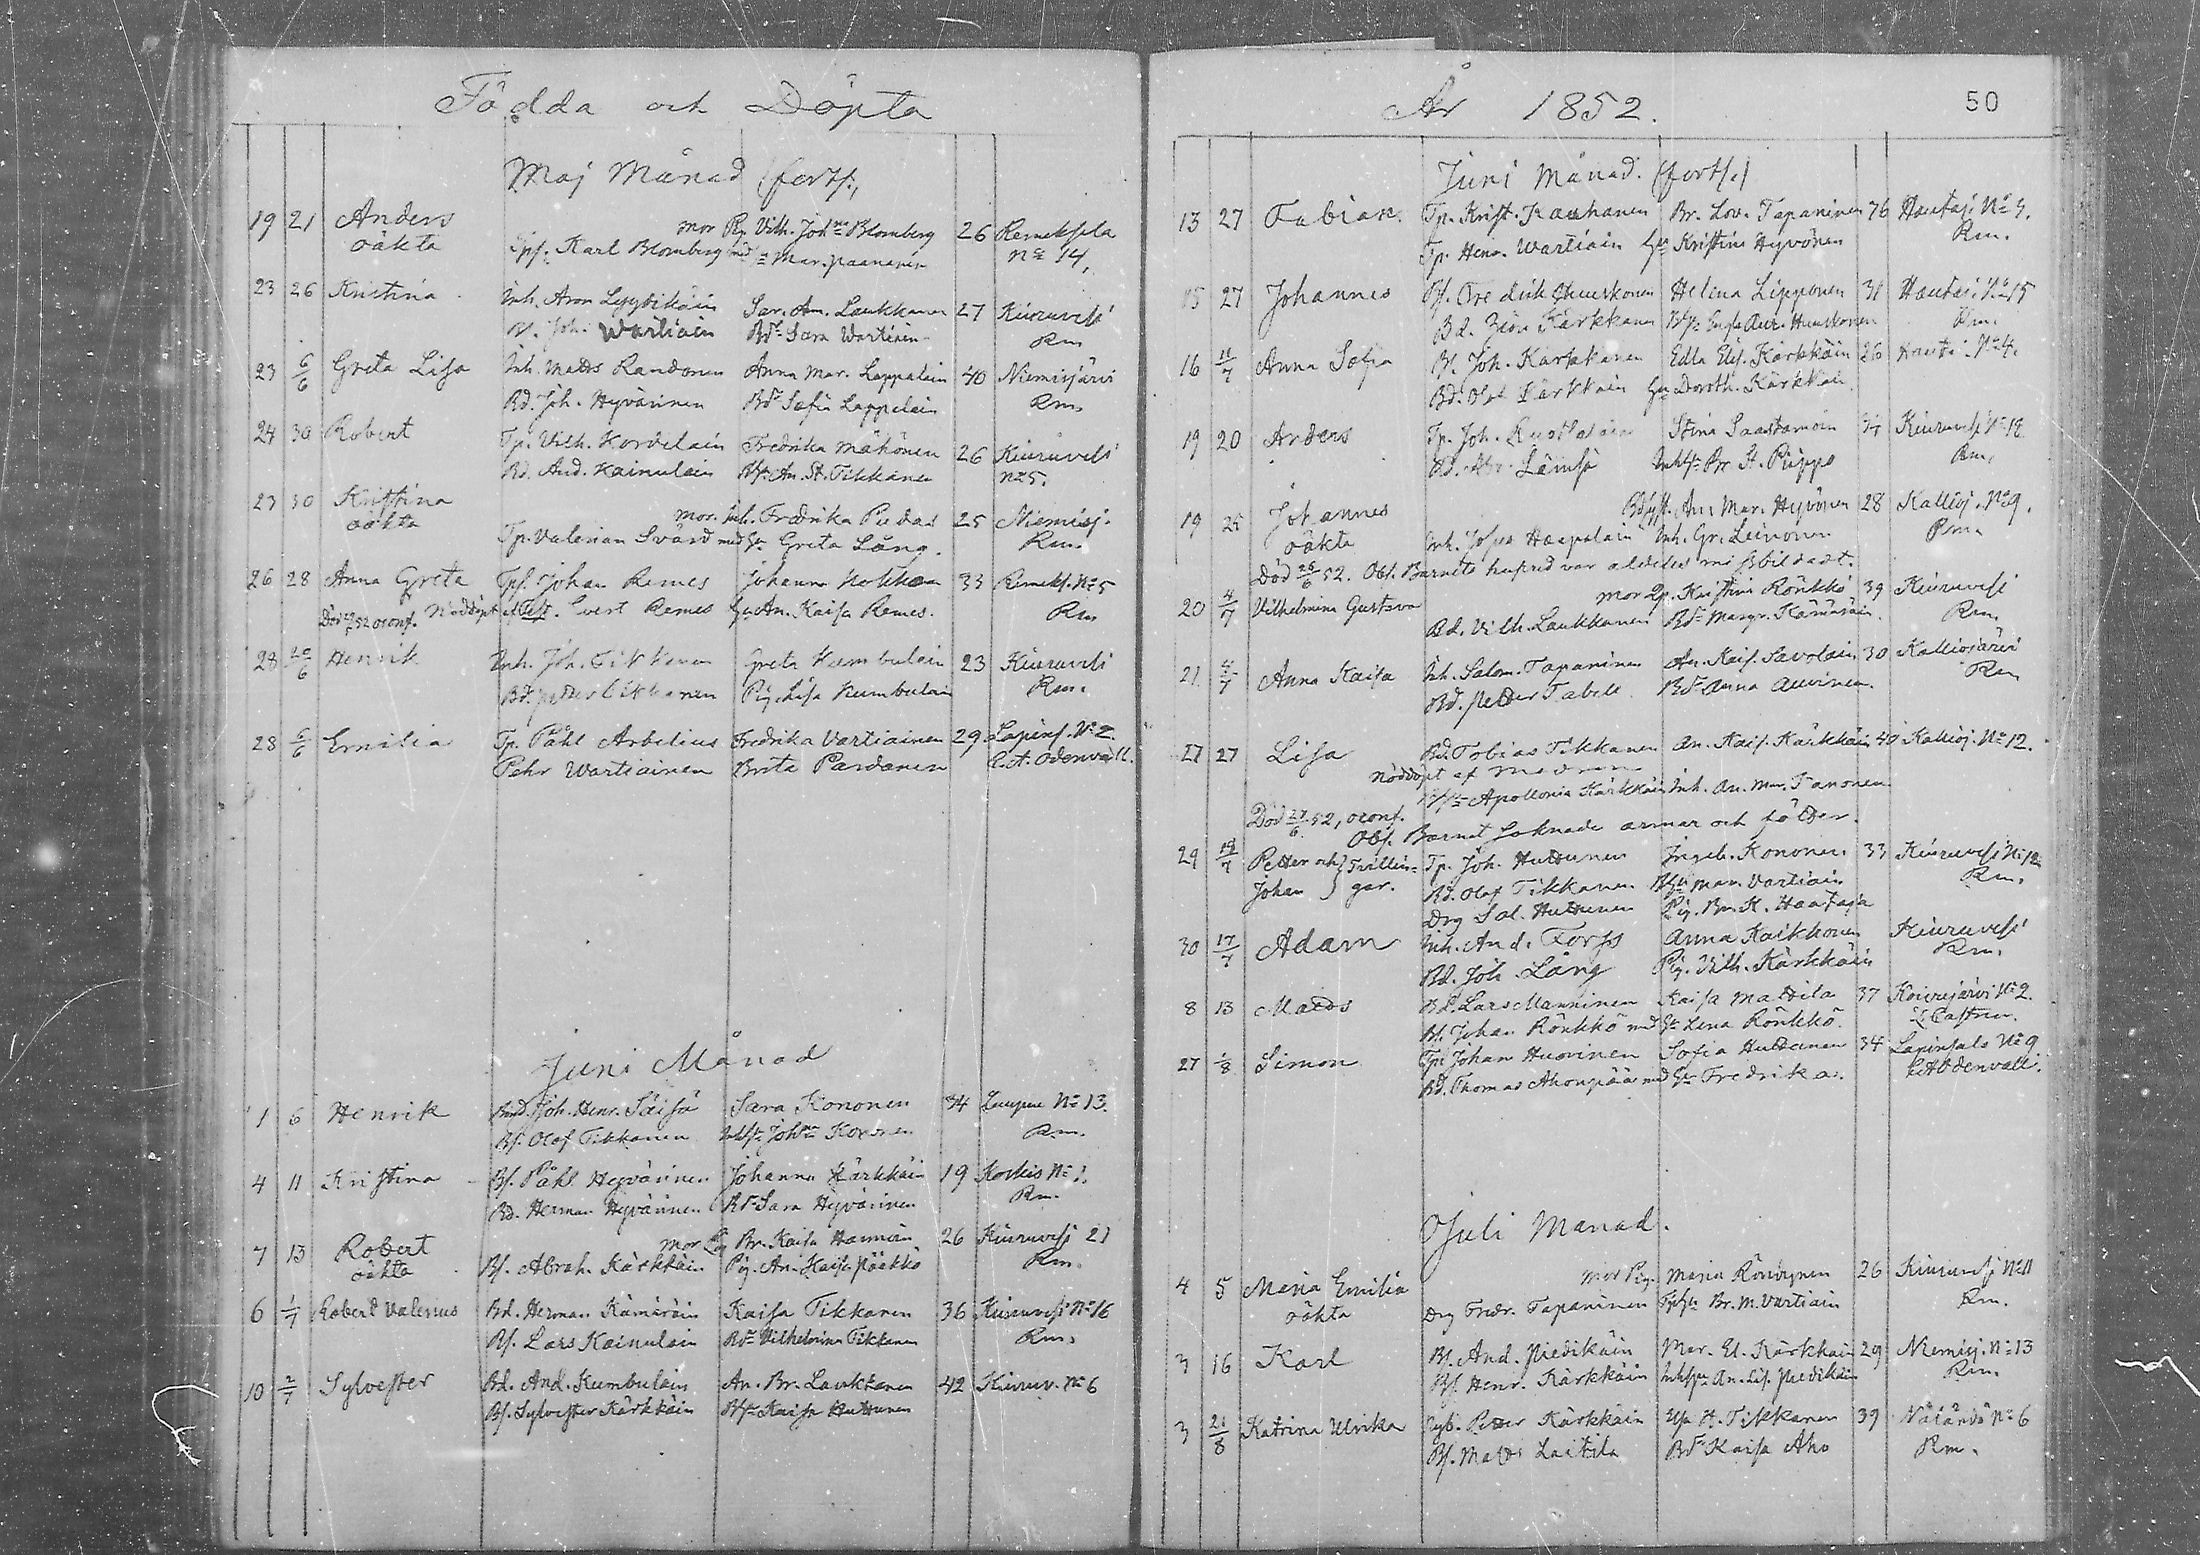 Födda och Döpta
Maj Månad (forts.)
19 21 Anders mor Pig. Vilh. Joh:na Blomberg 26 Remeksela
oäkta Tpf. Karl Blomberg med Mar. Paananen No 14.
23 26 Kristina Inh. Aron Lyytikäin Sar. An. Laukkanen 27 Kiuruvesi
Bf. Joh. Wartiain Bdr Sara Wartiain Rm.
23 6/6 Greta Lisa Inh. Matts Randonen Anna Mar. Lappalain 40 Niemisjärvi
Bd. Joh. Hyvärinen Bdr Sofia Lappalain Rm.
24 30 Robert Tp. Vilh. Kordelain Fredrika Mähönen 26 Kiuruvesi
Bd. And. Kainulain An. St. Tikkanen No 5.
23 30 Kristina mor. Inh. Fredrika Pudas 25 Niemisj.
oäkta Tp. Valerian Svärd med Greta Lång. Rm.
26 28 Anna Greta Tpf. Johan Remes Johanna Kokkon 33 Remeks. No 5
52 oconf. Nöddöpt af Evert Remes An. Kaisa Remes. Rm
28 20/6 Henrik Inh. Joh. Tikkanen Greta Kumbulain 23 Kiuruvesi
Bd. Petter Tikkanen Pig. Lisa Kumbulain Rm.
28 6/6 Emilia Tp. Påhl Arbelius Fredrika Vartiainen 29 Lapins. No 2.
Pehr Wartiainen Brita Pardanen C. A. Odenvall.
Juni Månad
1 6 Henrik Joh. Henr. Säisä Sara Kononen 34 No 13.
Bf. Olof Tikkanen Joh:na Kononen Rm.
4 11 Kristina Bf. Påhl Hyvärinen Johanna Kärkkäin 19 Koskis No 1.
Bd. Herman Hyvärinen Bdr Sara Hyvärinen Rm.
7 13 Robert mor Pig Br. Kaisa 26 Kiuruvesi 21
oäkta Bf. Abrah. Kärkkäin Pig. An. Kaisa Pääkkö Rm.
6 1/7 Robert Valerius Bd. Herman Kämäräin Kaisa Tikkanen 36 Kiuruvesi No 16
Bf. Lars Kainulain Bdr Vilhelmina Tikkanen Rm.
10 2/7 Sylvester Bd. And. Kumbulain An. Br. Laukkanen 42 Kiuruv. No 6
Bf. Sylvester Kärkkäin Kaisa Huttunen
År 1852. 50
Juni Månad. (forts.)
13 27 Fabian. Tp. Krist. Kauhanen Br. Lov. Tapaninen 76 Hautaj. No 4.
Tp. Henr. Wartiain Kristina Hyvönen Rm.
15 27 Johannes Bf. Fredrik Huuskonen Helena Lipponen 31 Hautaj. No 15
Bd. Zion Kärkkänen Huuskonen Rm.
16 11/7 Anna Sofia Bf. Joh. Kärkkänen Edla Elis. Kärkkäin 26 Hautaj. No 4.
Bd. Olof Kärkkäin Doroth. Kärkkäin.
19 20 Anders Tp. Joh. Stina Saastamoin 34 Kiuruvesi No 18
Bd. Abr. Lämsä Br. St. Piippo Rm.
19 25 Johannes An: Mar. Hyvönen 28 Kallioj. No 9.
oäkta Inh. Josua Haapalain Inh. Gr. Leinonen Rm.
Död 26/6 52. Obs. Barnets hufvud var alldeles missbildadt.
20 4/7 Vilhelmina Gustava mor Kristina Rönkkö 39 Kiuruvesi
Bd. Vilh. Laukkanen Bdr Margr. Kämäräin. Rm.
21. 4/7 Anna Kaisa Inh. Salom. Tapaninen An. Kais. Savolain 30 Kalliojärvi
Bd. Petter Tabell. Bdr Anna Auvinen. Rm
27 27 Lisa Bd. Tobias Tikkanen An. Kais. Kärkkäin 40 Kallioj. No 12.
Nöddöpt af modren
Apollonia Kärkkäin Inh. An. Mar. Tanonen
Död 27/6 52, oconf.
Obs. Barnet saknade armar och fötter.
29 18/7 Petter och } Tvillin- Tp. Joh. Huttunen Ingeb. Kononen 33 Kiuruvesi No 12
Johan } gar. Bd. Olof Tikkanen Mar. Vartiain Rm.
Drg Sal. Huttunen Pig. Br. K. Haataja
30 17/7 Adam Inh. And. Forss Anna Kaikkonen Kiuruvesi
Bd. Joh. Lång Pig. Vilh. Kärkkäin Rm.
8 13 Matts Bd. Lars Manninen Kaisa Mattila 37 Koivujärvi No 2.
Bf. Johan Rönkkö med Lena Rönkkö. Castren.
27 1/8 Simon Tp. Johan Huovinen Sofia Huttunen 34 Lapinsalo No 9
Bd. Thomas Ahonpää med Fredrika. C. A. Odenvall.
Juli Månad.
4 5 Maria Emilia mor Pig. Maria 26 Kiuruvesi No 11
oäkta Drg Fredr. Tapaninen Br. M. Vartiain Rm.
3 16 Karl Bf. And. Piedikäin Mar. El. Kärkkäin 29 Niemisj. No 13
Bf. Henr. Kärkkäin An. Lis. Piedikäin Rm.
3 21/8 Katrina Ulrika Petter Kärkkäin Ulr. H. Tikkanen 39 Näländö No 6
Bf. Matts Laitila Bdr Kaisa Aho Rm.